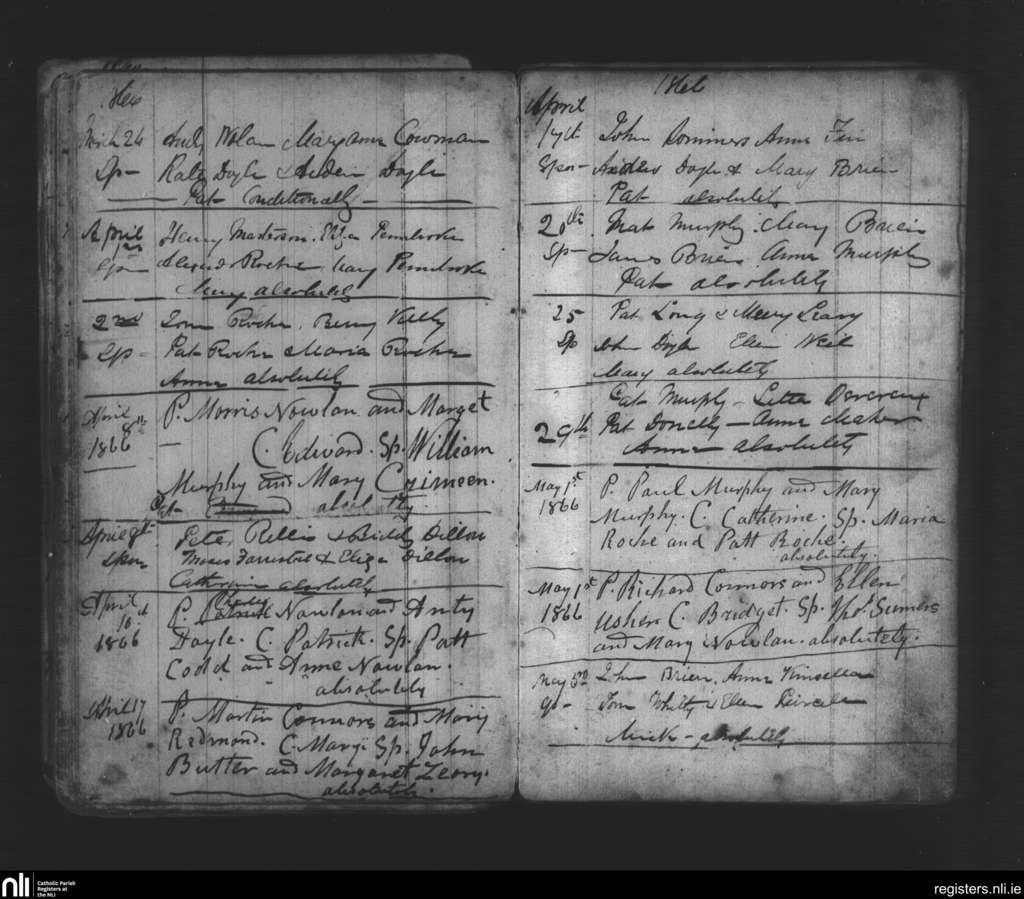 March 26 Andy Nolan Maryanne Cowman
Sp - Kate Doyle & Doyle
Pat Conditionally
April Henry Masterson. Eliza Pembroke
Sp - Roche Mary Pembroke
Mary absolutely
2nd Tom Roche. Kelly
Sp - Pat Roche & Maria Roche
Anne absolutely
April 8th P. Morris Nowlan and Marget
1866 - C. Edward. Sp. William
Murphy and Mary Crimeen.
absolutely.
April 9th Peter Rellis & Biddy Dillon
Spon Moses & Eliza Dillon
Catherine absolutely
April P. Nowlan and Anty
1866 Doyle. C. Patrick. Sp. Patt
Codd and Anne Nowlan.
absolutely
April 17 P. Martin Connors and Mary
1866 Redmond. C. Mary. Sp. John
Butler and Margaret Leary.
absolutely.
1866
April
17th John Sommers Anne
Spon - Doyle & Mary Brien
Pat absolutely
20th Mat Murphy. Mary Brien
Sp - James Brien Anne Murphy
Pat absolutely
25 Pat Long & Mary Leary
Sp John Doyle Ellen
Mary absolutely
Pat Murphy - Devereux
29th Pat Donelly - Anne Maher
Anne absolutely
May 1st P. Paul Murphy and Mary
1866 Murphy. C. Catherine. Sp. Maria
Roche and Patt Roche.
absolutely.
May 1st P. Richard Connors and Ellen
1866 Usher. C. Bridget. Sp. Thos. Sumers
and Mary Nowlan. absolutely.
May John Brien. Anne Kinsella
Tom Whitty & Ellen
Mick - absolutely
nli Catholic Parish
Registers at
the NLI
registers.nli.ie